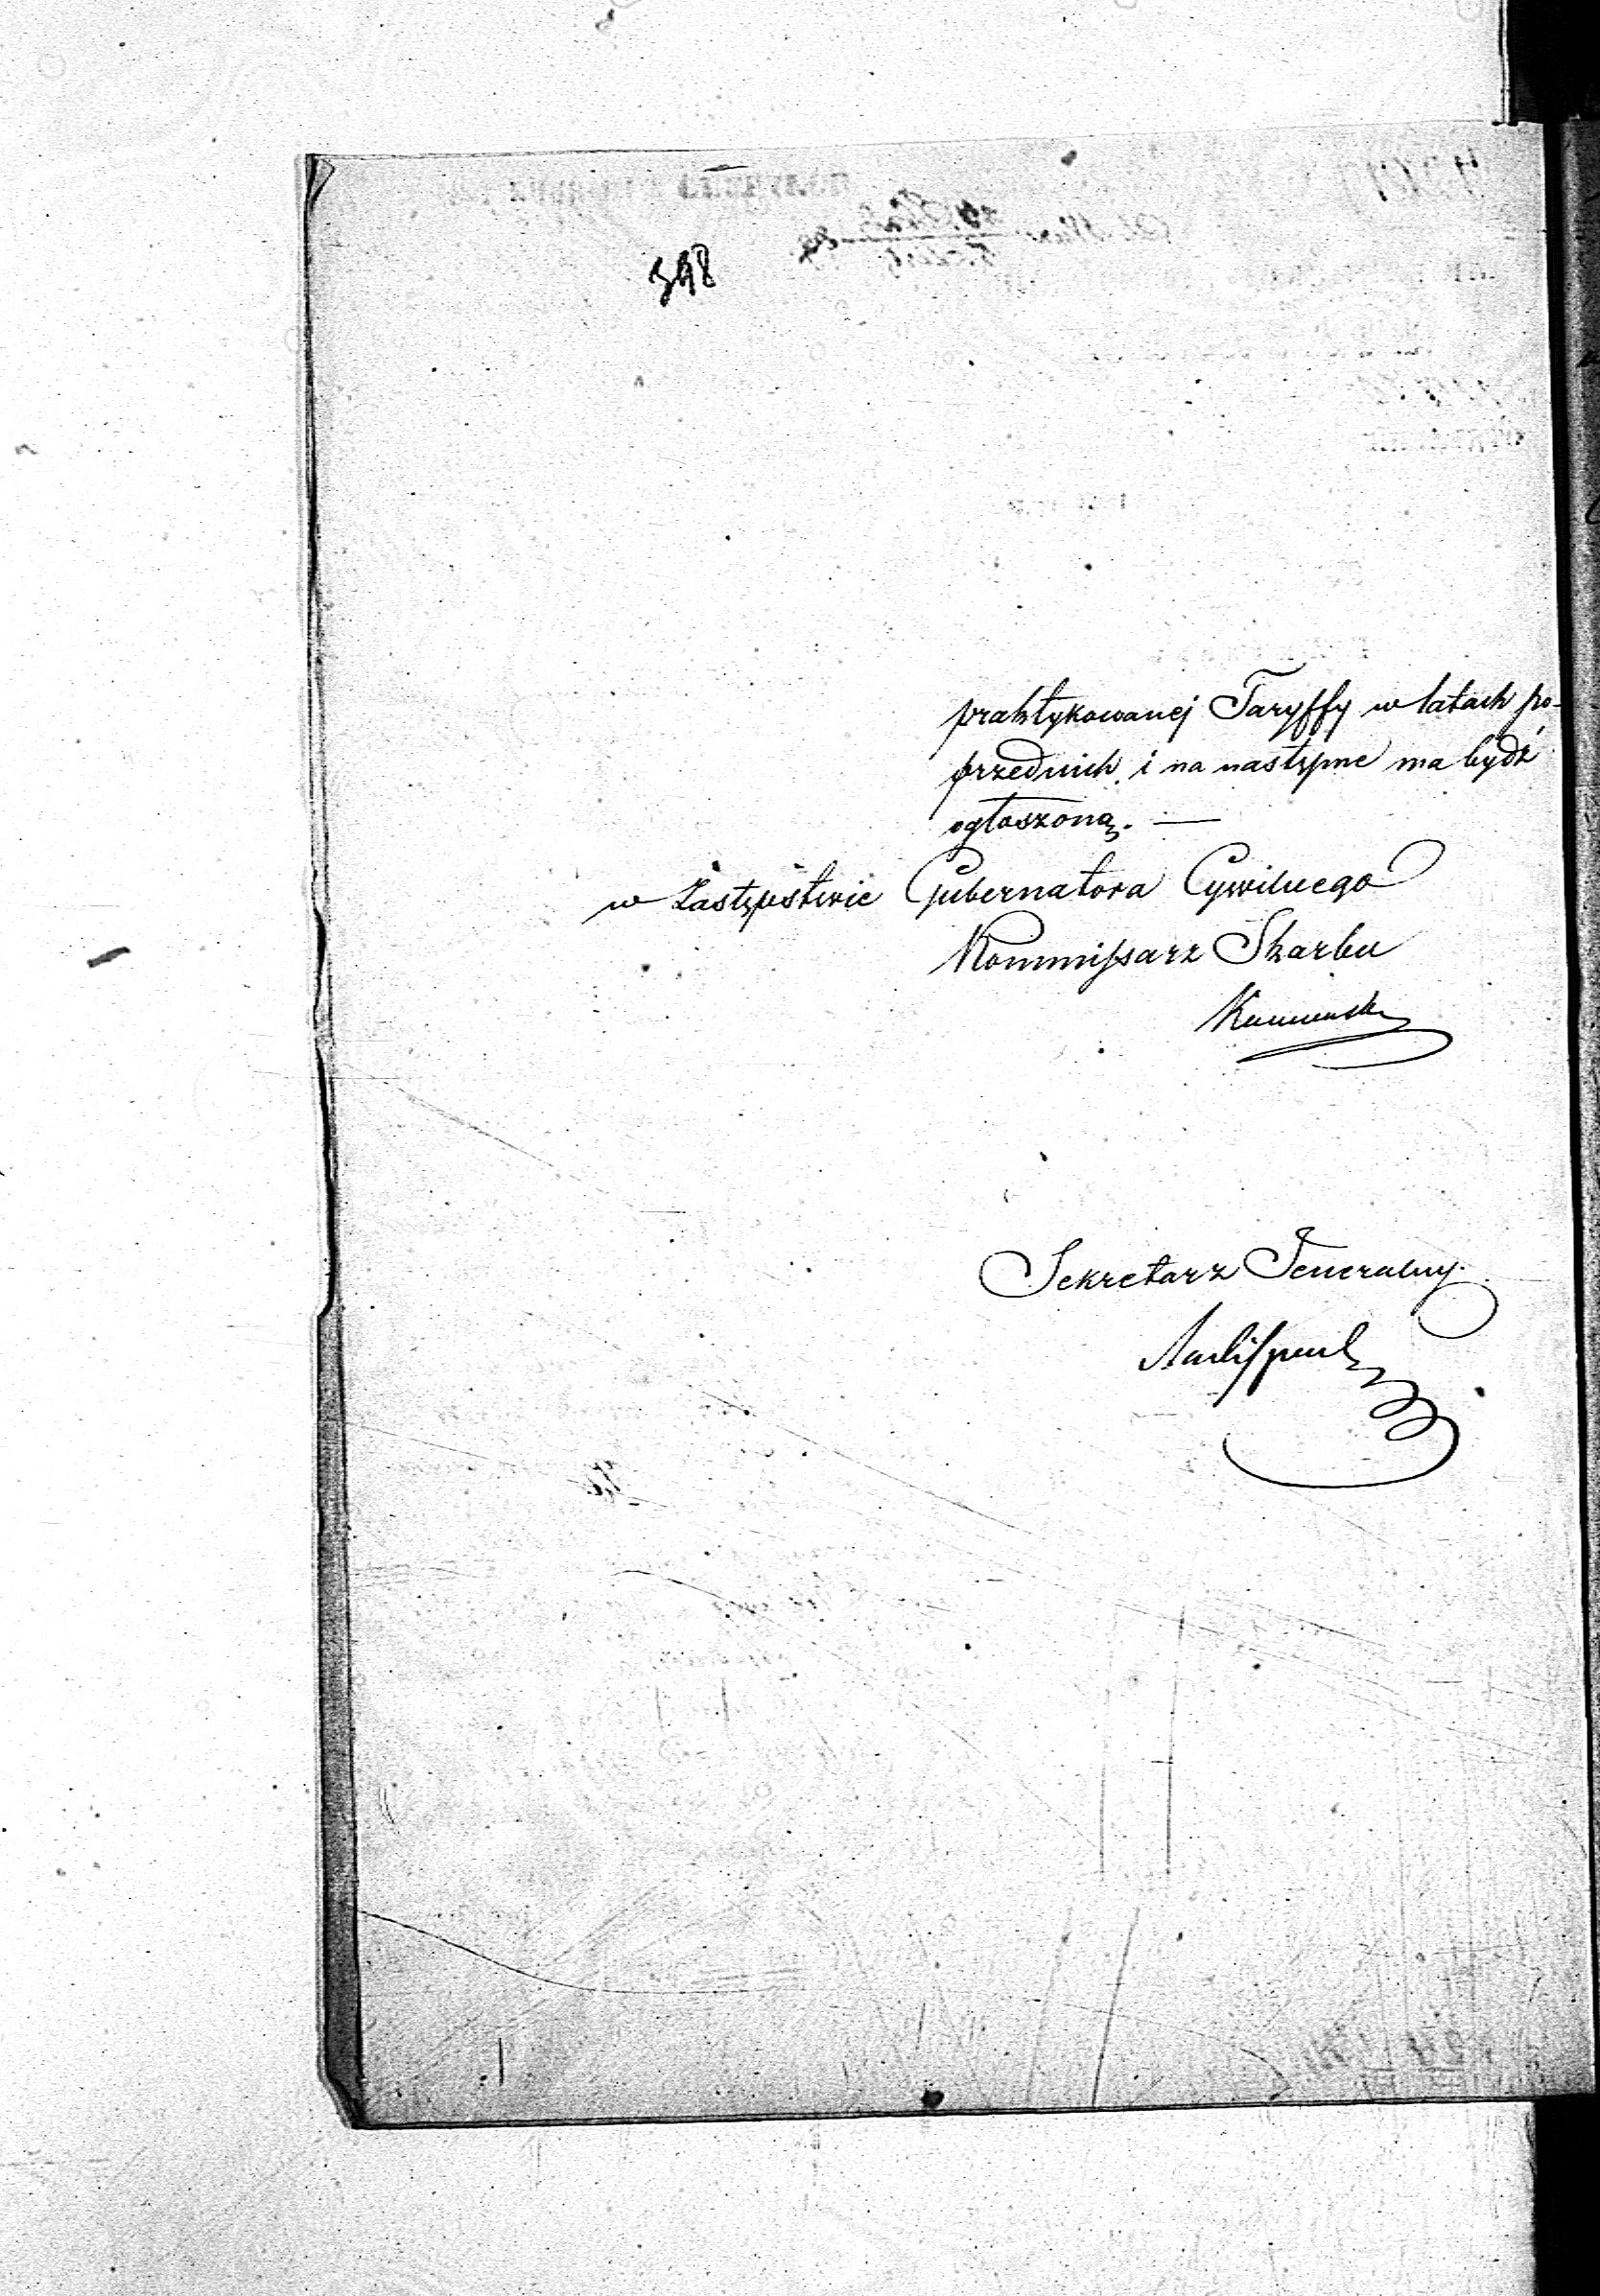 348
praktykowanej Taryffy w latach po-
przednich i na następne ma bydź
ogłoszoną. —
w Zastępstwie Gubernatora Cywilnego
Kommissarz Skarbu
Sekretarz Jeneralny.